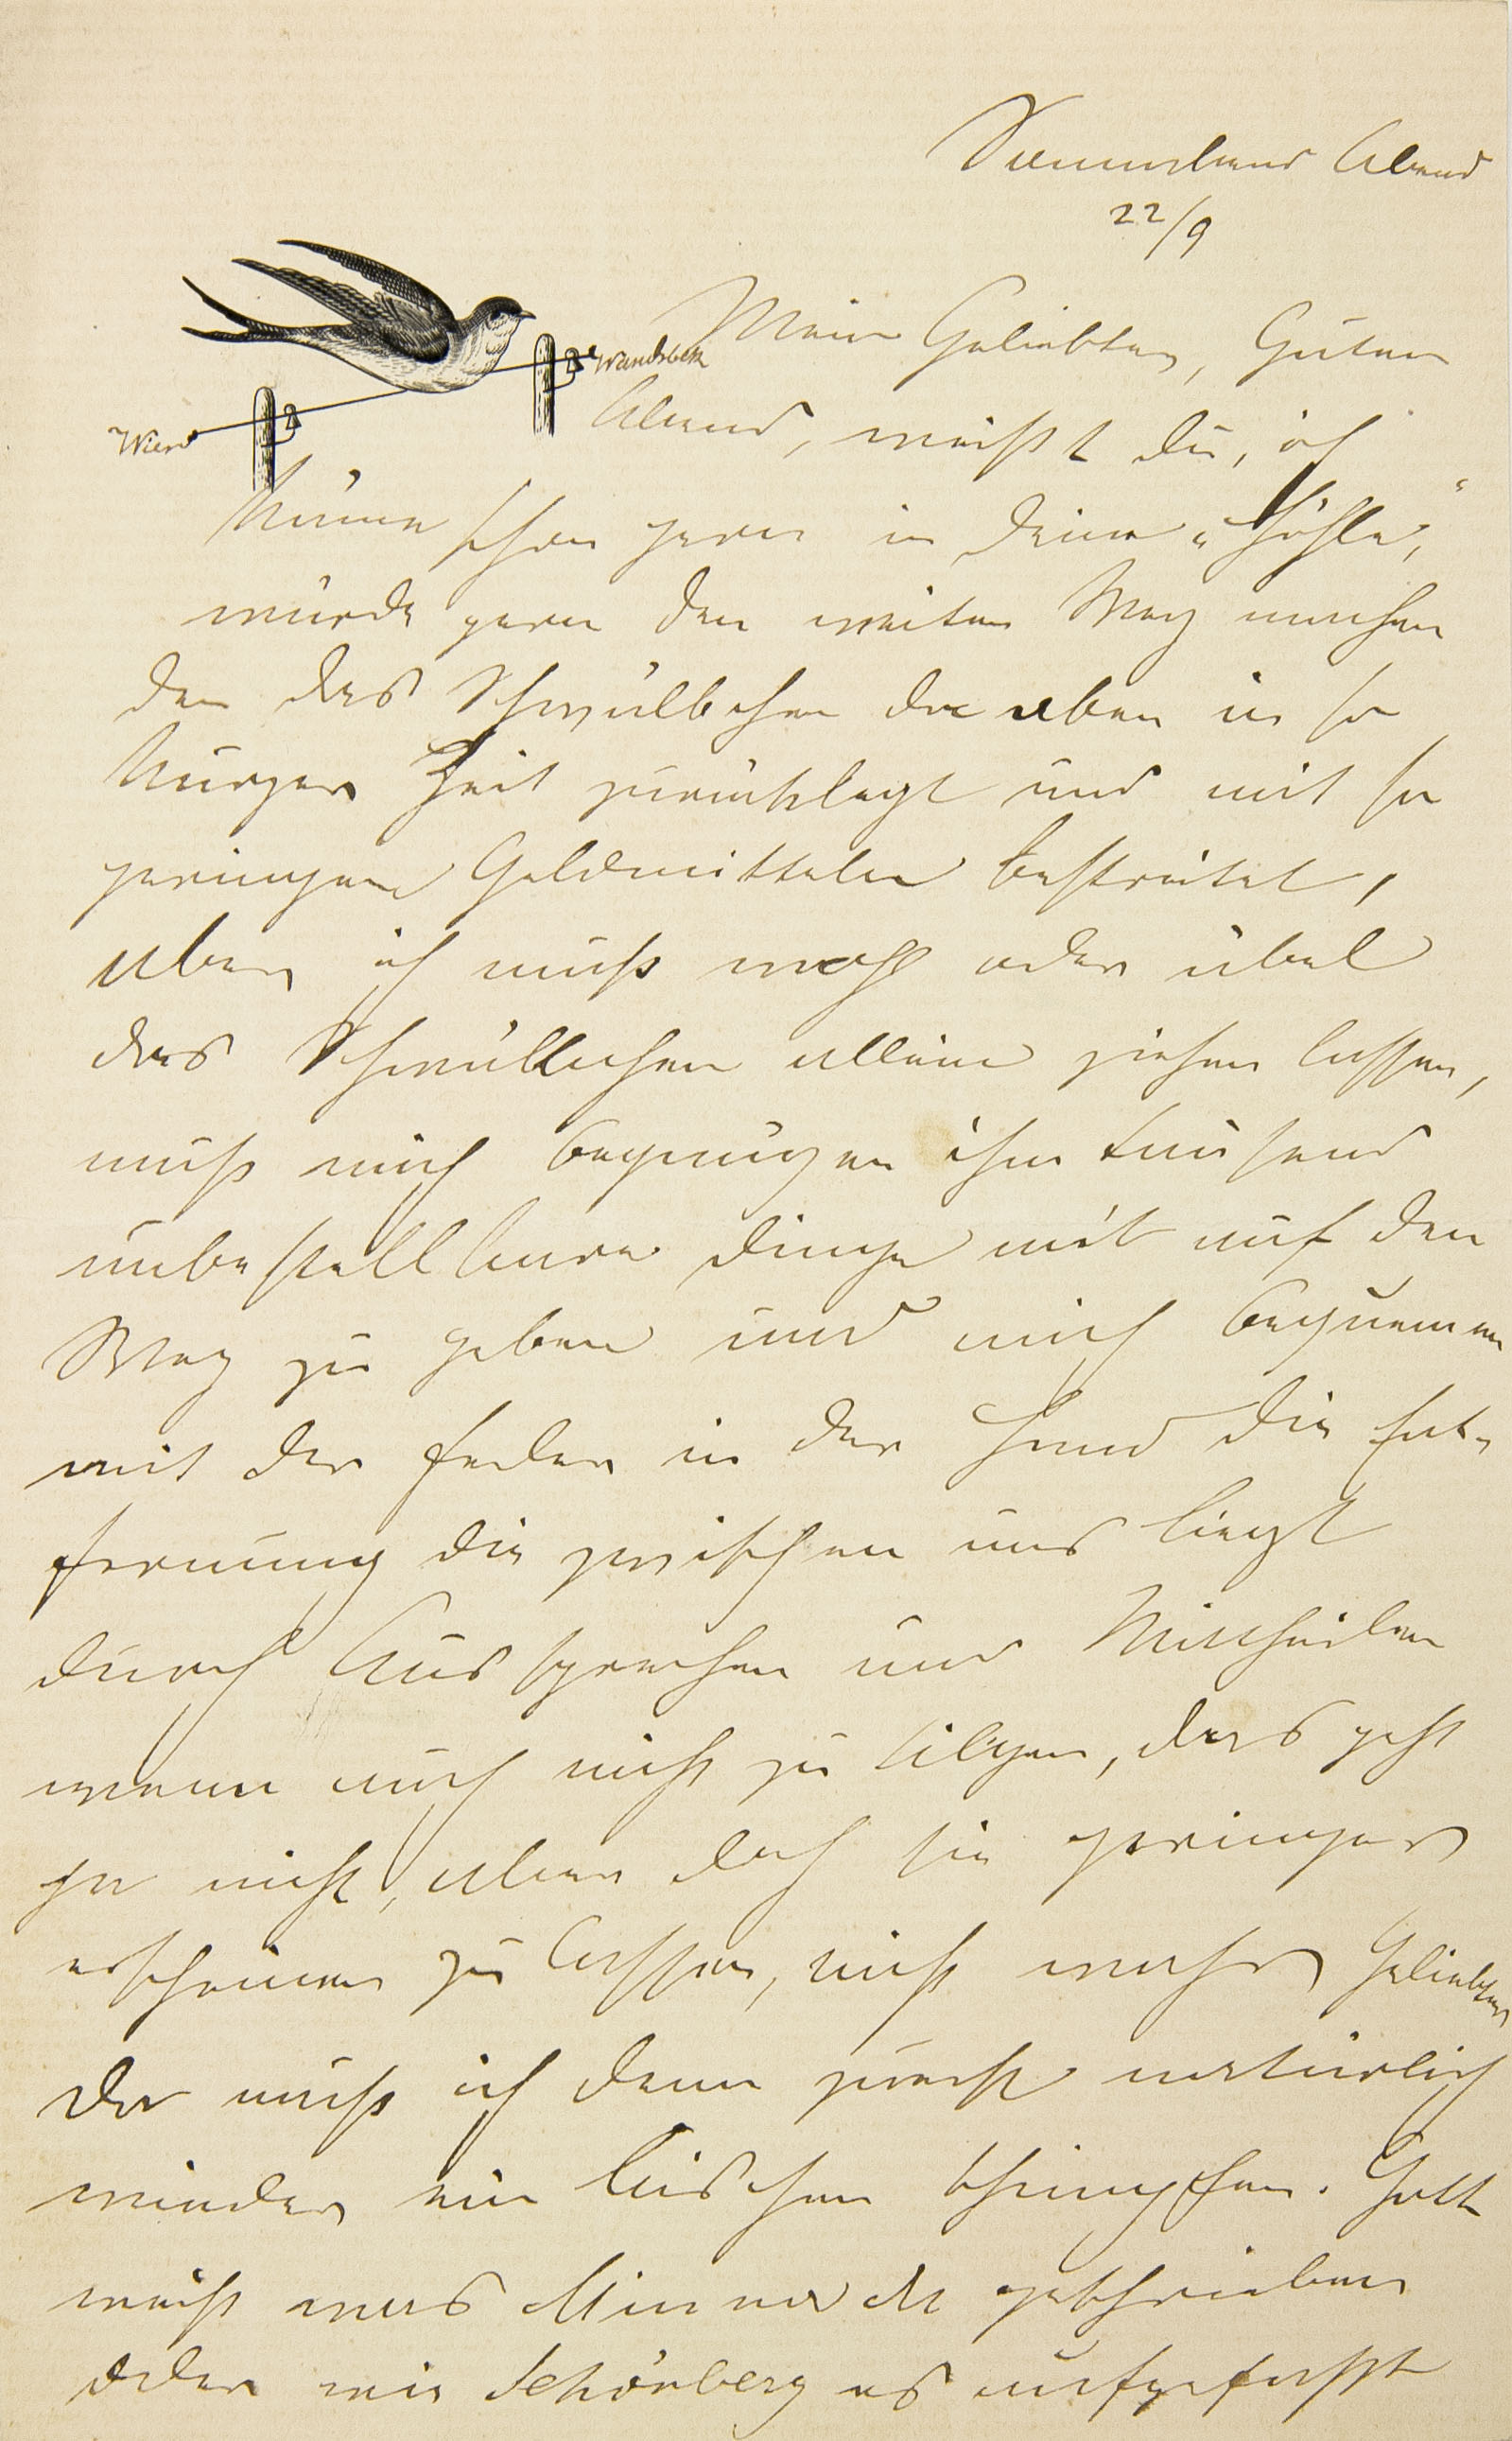 Sonnabend Abend
22/9
Wandsbek
Mein Geliebter, Guten
Wien
Abend, weißt Du, ich
käme schon gern in Deine „Höhle“,
würde gern den weiten Weg machen
den das Schwälbchen da oben in so
kurzer Zeit zurücklegt und mit so
geringen Geldmitteln bestreitet,
aber ich muß wohl oder übel
das Schwälbchen allein ziehen lassen,
muß mich begnügen ihm tausend
unbestellbare Dinge mit auf den
Weg zu geben und mich bequemen
mit der Feder in der Hand die Ent-
fernung die zwischen uns liegt
durch Aussprechen und Mittheilen
wenn auch nicht zu tilgen, das geht
ja nicht, aber doch sie geringer
erscheinen zu lassen, nicht wahr Geliebter
Da muß ich denn zuerst natürlich
wieder ein bischen schimpfen. Gott
weiß was Minna Dir geschrieben
oder wie Schönberg es aufgefaßt